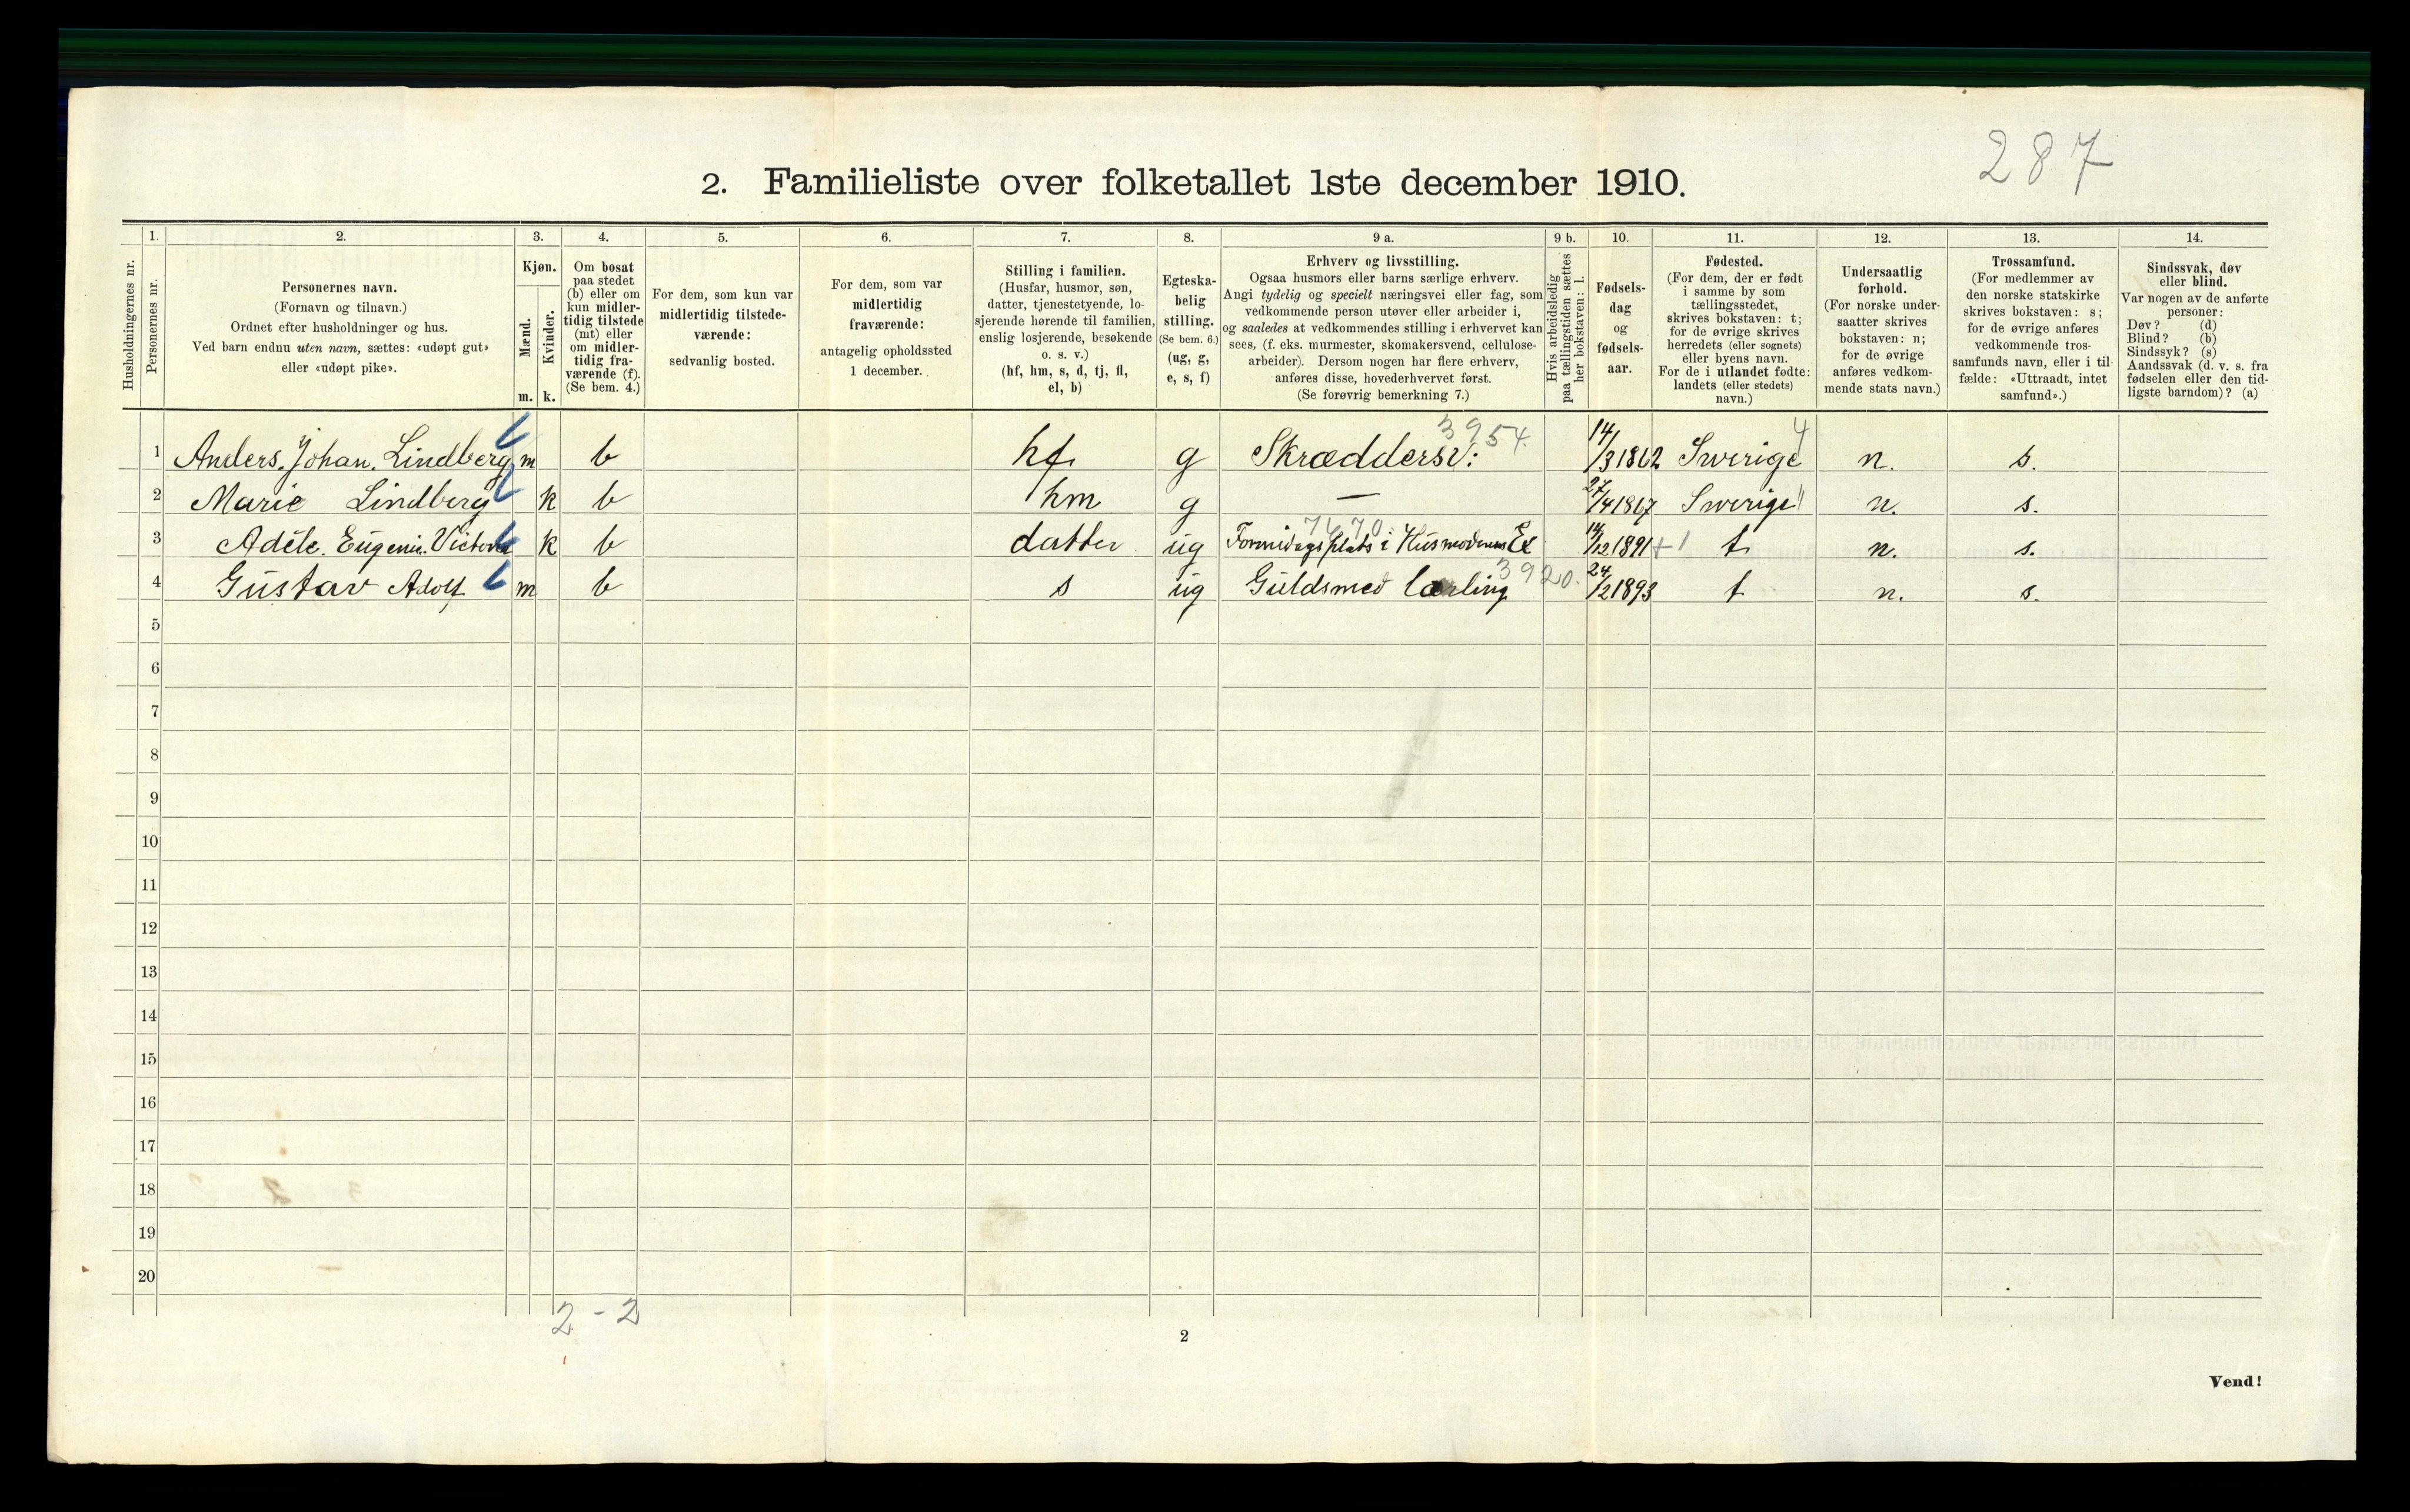 287
2. Familieliste over folketallet 1ste december 1910.
1. 2. 3. 4. 5. 6. 7. 8. 9 a. 9 b. 10. 11. 12. 13. 14.
Husholdningernes nr.
Personernes nr.
Personernes navn.
(Fornavn og tilnavn.)
Ordnet efter husholdninger og hus.
Ved barn endnu uten navn, sættes: «udøpt gut»
eller «udøpt pike».
Kjøn.
Mænd.
Kvinder.
m. k.
Om bosat
paa stedet
(b) eller om
kun midler-
tidig tilstede
(mt) eller
om midler-
tidig fra-
værende (f).
(Se bem. 4.)
For dem, som kun var
midlertidig tilstede-
værende:
sedvanlig bosted.
For dem, som var
midlertidig
fraværende:
antagelig opholdssted
1 december.
Stilling i familien.
(Husfar, husmor, søn,
datter, tjenestetyende, lo-
sjerende hørende til familien,
enslig losjerende, besøkende
o. s. v.)
(hf, hm, s, d, tj, fl,
el, b)
Egteska-
belig
stilling.
(Se bem. 6.)
(ug, g,
e, s, f)
Erhverv og livsstilling.
Ogsaa husmors eller barns særlige erhverv.
Angi tydelig og specielt næringsvei eller fag, som
vedkommende person utøver eller arbeider i,
og saaledes at vedkommendes stilling i erhvervet kan
sees, (f. eks. murmester, skomakersvend, cellulose-
arbeider). Dersom nogen har flere erhverv,
anføres disse, hovederhvervet først.
(Se forøvrig bemerkning 7.)
Hvis arbeidsledig
paa tællingstiden sættes
her bokstaven: l.
Fødsels-
dag
og
fødsels-
aar.
Fødested.
(For dem, der er født
i samme by som
tællingsstedet,
skrives bokstaven: t;
for de øvrige skrives
herredets (eller sognets)
eller byens navn.
For de i utlandet fødte:
landets (eller stedets)
navn.)
Undersaatlig
forhold.
(For norske under-
saatter skrives
bokstaven: n;
for de øvrige
anføres vedkom-
mende stats navn.)
Trossamfund.
(For medlemmer av
den norske statskirke
skrives bokstaven: s;
for de øvrige anføres
vedkommende tros-
samfunds navn, eller i til-
fælde: «Uttraadt, intet
samfund».)
Sindssvak, døv
eller blind.
Var nogen av de anførte
personer:
Døv? (d)
Blind? (b)
Sindssyk? (s)
Aandssvak (d. v. s. fra
fødselen eller den tid-
ligste barndom)? (a)
3954. 4
1 Anders. Johan. Lindberg m b hf g Skræddersv: 14/3 1862 Sverige n. s.
2 Marie Lindberg k b hm g — 27/4 1867 Sverige " n. s.
3 Adéle. Eugenie. Victoria k b datter ug Formidagsplats i Husmoderens 14/12 1891 + 1 t n. s.
3920.
4 Gustav Adolf m b s ug Guldsmed lærling 24/2 1893 t n. s.
5
6
7
8
9
10
11
12
13
14
15
16
17
18
19
20
2 - 2
2
Vend!